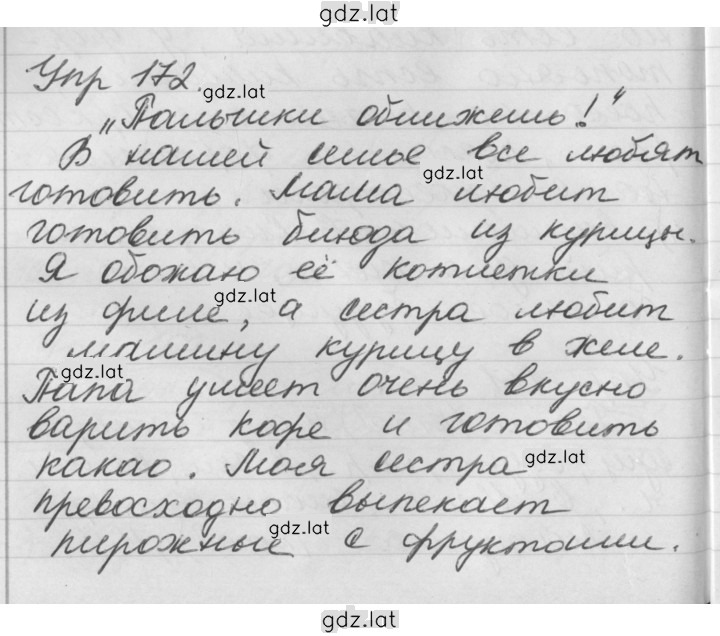 gdz.lat
Упр 172.
gdz.lat
„Пальчики оближешь!"
В нашей семье все любят
gdz.lat
готовить. Мама любит
готовить блюда из курицы.
Я обожаю её котлетки
gdz.lat
из филе, а сестра любит
мамину курицу в желе.
gdz.lat
Папа умеет очень вкусно
варить кофе и готовить
какао. Моя сестра
gdz.lat
превосходно выпекает
gdz.lat
пирожные с фруктами.
gdz.lat